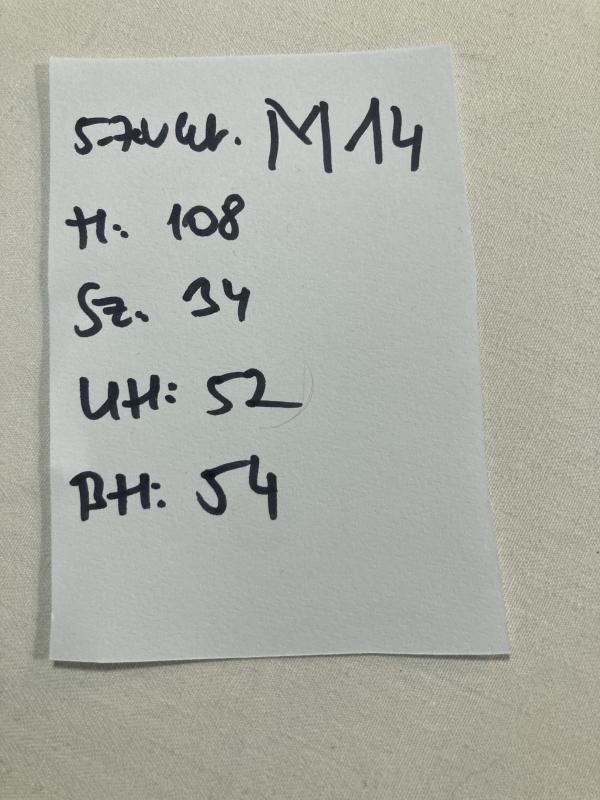 M14
H: 108
Sz. 34
UH: 52
BH: 54